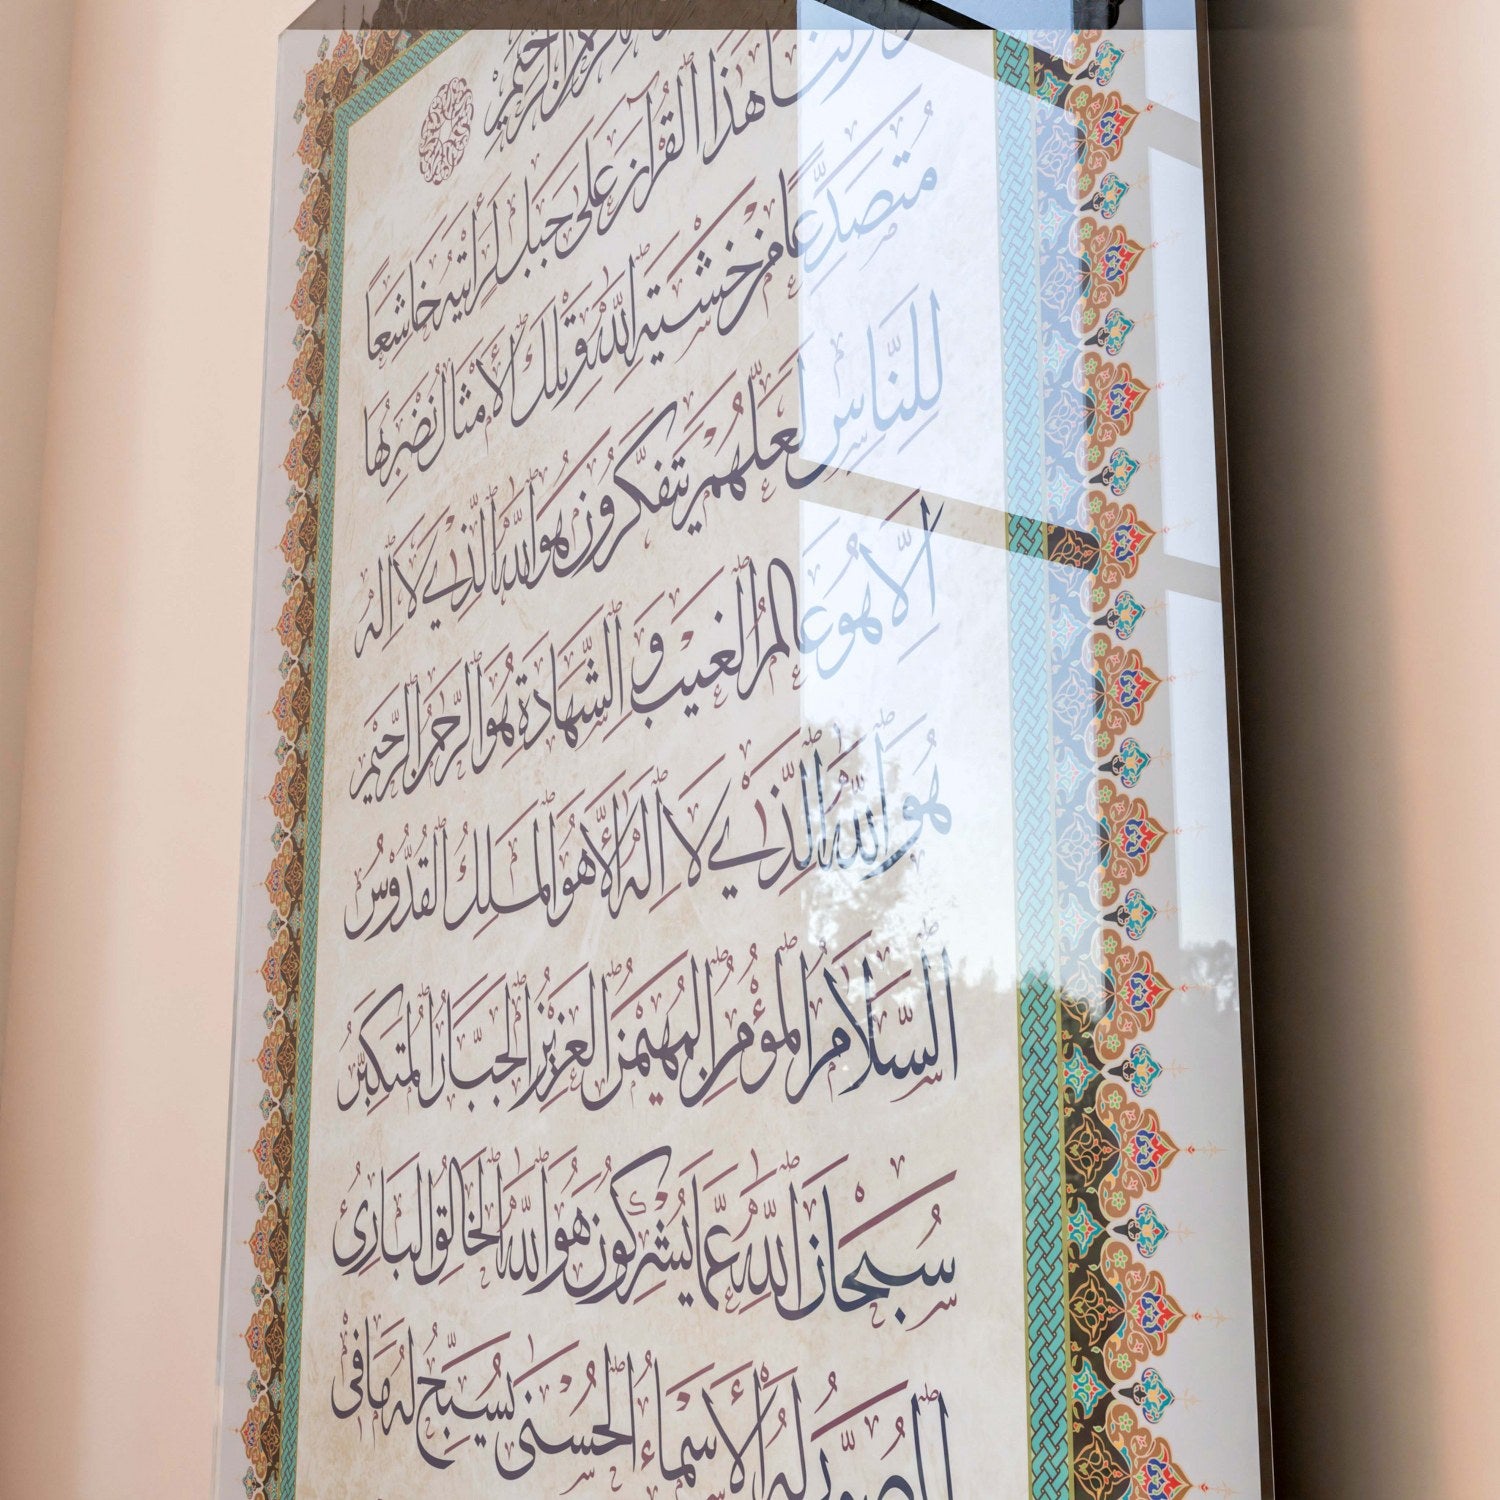 الرحمن الرحيم
أنزلنا هذا القرآن على جبل لرأيته خاشعًا
متصدعًا من خشية الله وتلك الأمثال نضربها
للناس لعلهم يتفكرون هو الله الذي لا إله
إلا هو عالم الغيب والشهادة هو الرحمن الرحيم
هو الله الذي لا إله إلا هو الملك القدوس
السلام المؤمن المهيمن العزيز الجبار المتكبر
سبحان الله عما يشركون هو الله الخالق البارئ
المصور له الأسماء الحسنى يسبح له ما في